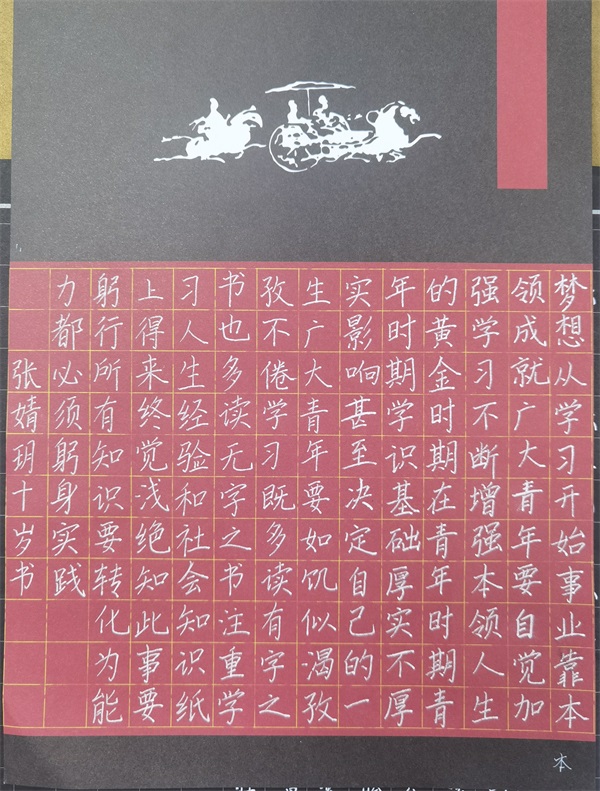 梦想从学习开始事业靠本
领成就广大青年要自觉加
强学习不断增强本领人生
的黄金时期在青年时期青
年时期学识基础厚实不厚
实影响甚至决定自己的一
生广大青年要如饥似渴孜
孜不倦学习既多读有字之
书也多读无字之书注重学
习人生经验和社会知识纸
上得来终觉浅绝知此事要
躬行所有知识要转化为能
力都必须躬身实践
张婧玥十岁书
本